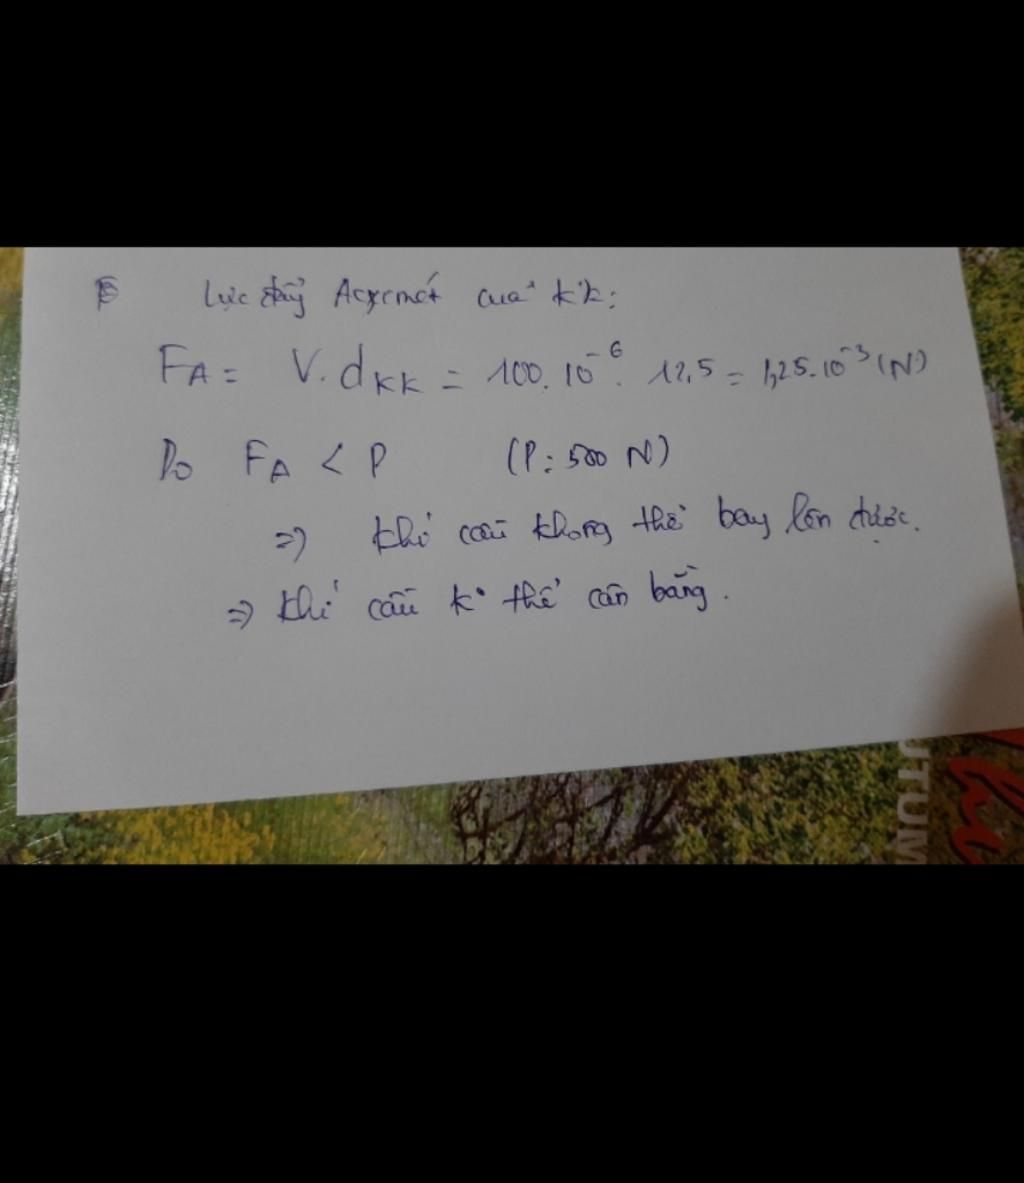 Lực đẩy Acximét của kk:
FA = V. dKK = 100. 10⁻⁶. 12,5 = 1,25. 10⁻³ (N)
Do FA < P (P: 500 N)
=> khí cầu không thể bay lên được.
=> khí cầu k° thể cân bằng.
UTUM